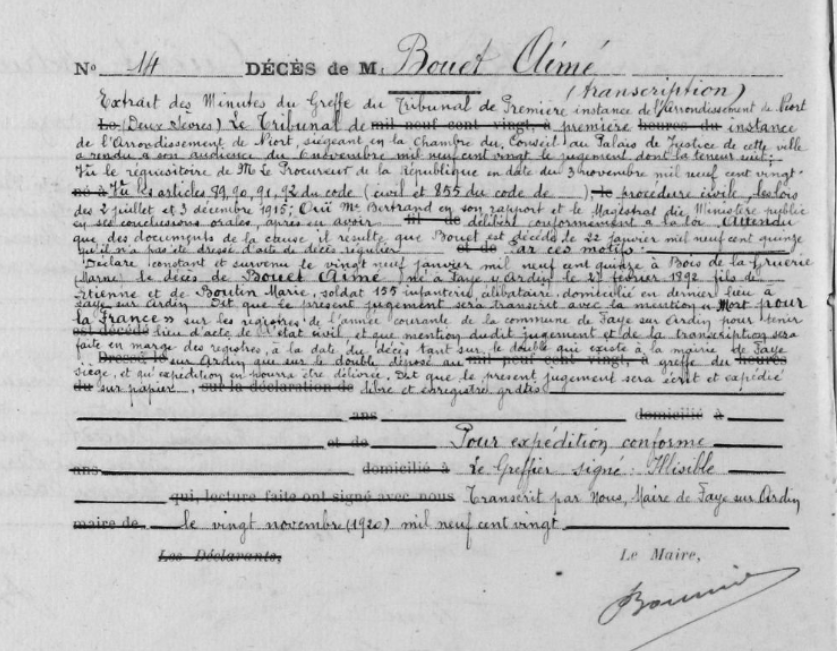 No 14 DÉCÈS de M. Bouet Aimé
(transcription)
Extrait des Minutes du Greffe du Tribunal de Première instance de l'arrondissement de Niort
Le (Deux Sèvres) Le Tribunal de mil neuf cent vingt, à première heures du instance
de l'Arrondissement de Niort, siégeant en la Chambre du Conseil au Palais de Justice de cette ville
a rendu à son audience du 6 novembre mil neuf cent vingt le jugement dont la teneur suit:
Vu le réquisitoire de Mr Le Procureur de la République en date du 3 novembre mil neuf cent vingt -
né à Vu les articles 89, 90, 91, 92 du code (civil et 855 du code de ), le procédure civile, les lois
des 2 juillet et 3 décembre 1915; Ouï Mr Bertrand en son rapport et le Magistrat du Ministère public
en ses conclusions orales, après en avoir fil de délibéré conformément à la loi. Attendu
que des documents de la cause il résulte, que Bouet est décédé le 22 janvier mil neuf cent quinze
qu'il n'a pas été dressé d'acte de décès régulier et de Par ces motifs -
Déclare constant et survenu le vingt neuf janvier mil neuf cent quinze à Bois de la Gruerie
(Marne) le décès de Bouet Aimé né à Faye s/ Ardin le 27 février 1892 fils de
Etienne et de Boutin Marie, soldat 155 infanterie, célibataire, domicilié en dernier lieu à
Faye sur Ardin Dit que le présent jugement sera transcrit avec la mention « Mort pour
la France » sur les registres de l'année courante de la commune de Faye sur Ardin pour tenir
est décédé lieu d'acte de l'état civil et que mention dudit jugement et de la transcription sera
faite en marge des registres, à la date du décès tant sur le double qui existe à la mairie de Faye
Dressé le sur Ardin que sur le double déposé au mil neuf cent vingt, à greffe du heures
siège, et qu'expédition en pourra être délivrée. Dit que le présent jugement sera écrit et expédié
du sur papier sur la déclaration de libre et enregistré gratis
ans domicilié à
et de Pour expédition conforme
ans domicilié à Le Greffier signé: Illisible
qui, lecture faite ont signé avec nous Transcrit par Nous, Maire de Faye sur Ardin
maire de le vingt novembre (1920) mil neuf cent vingt
Les Déclarants, Le Maire,